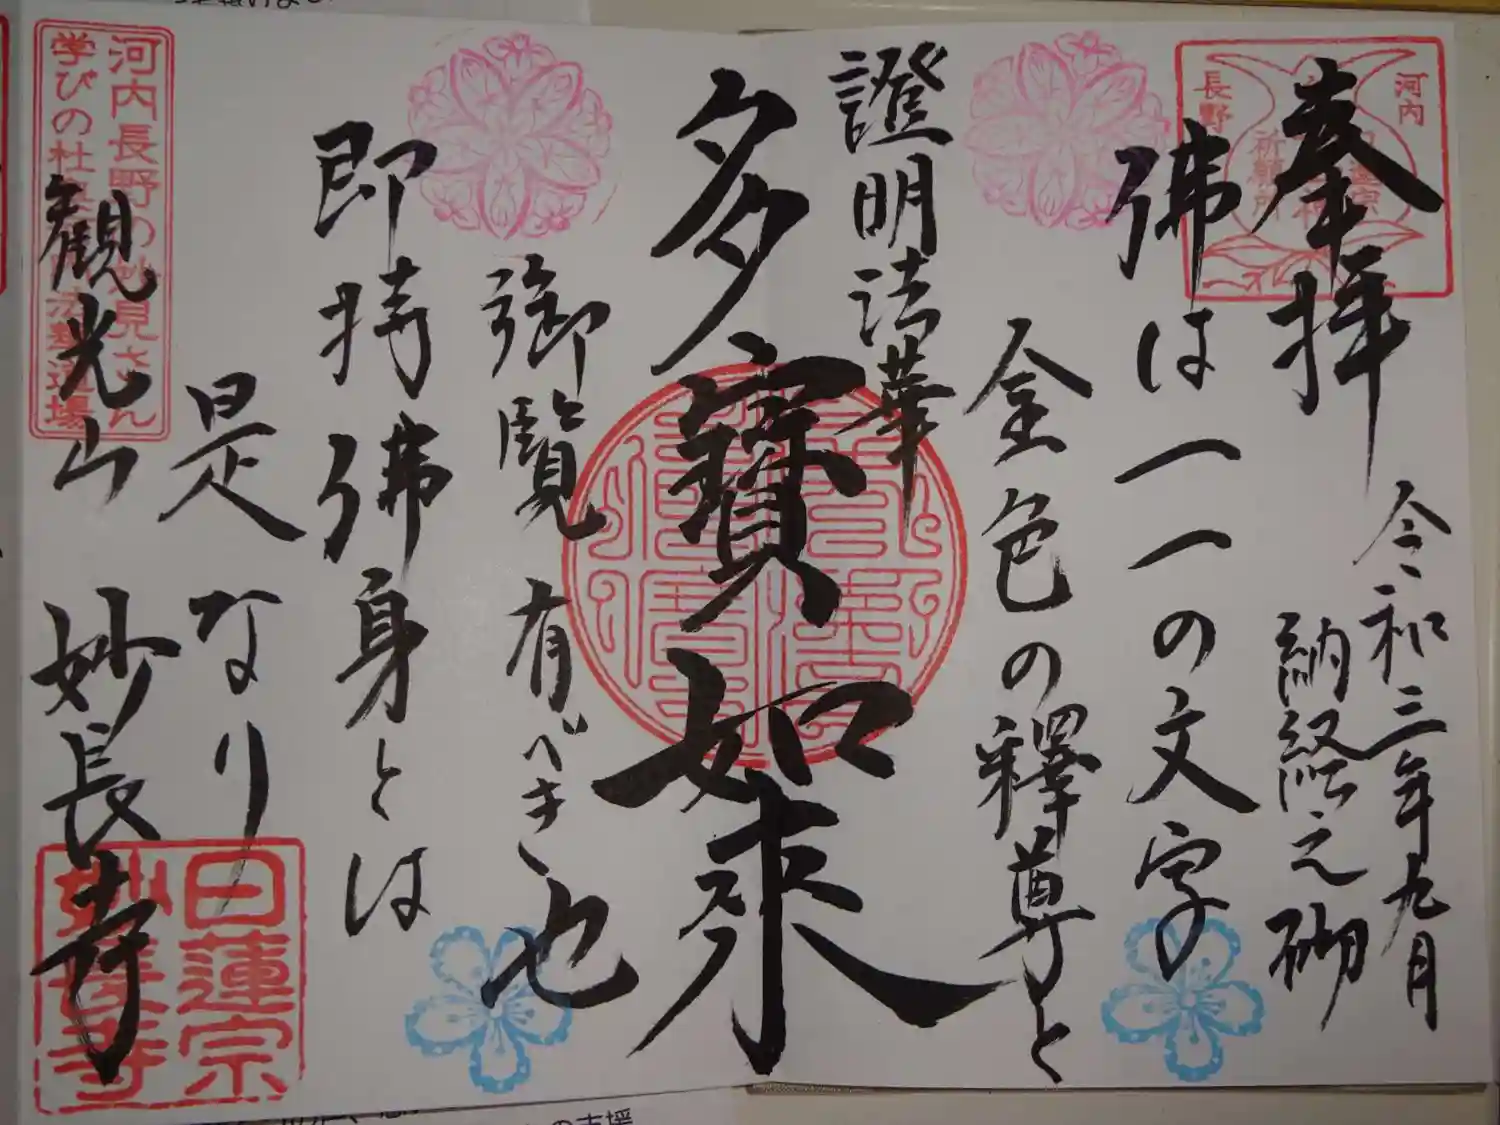 奉拝
令和三年九月
納経之砌
佛は一一の文字
金色の釋尊と
證明法華
多寳如来
御覧有べき也
即持佛身とは
是なり
観光山 妙長寺
河内
長野
祈願所
河内長野の妙見さん
学びの杜
日蓮宗
妙長寺